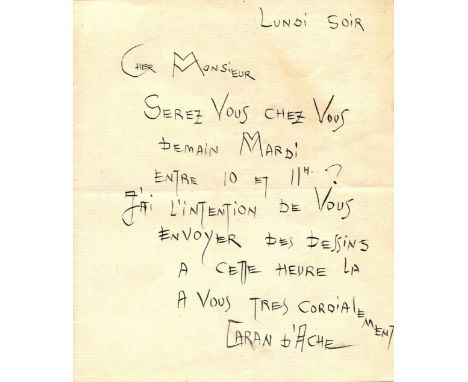 LUNDI SOIR
CHER MONSIEUR
SEREZ VOUS CHEZ VOUS
DEMAIN MARDI
ENTRE 10 ET 11H. ?
J'AI L'INTENTION DE VOUS
ENVOYER DES DESSINS
A CETTE HEURE LA
A VOUS TRES CORDIALEMENT
CARAN D'ACHE